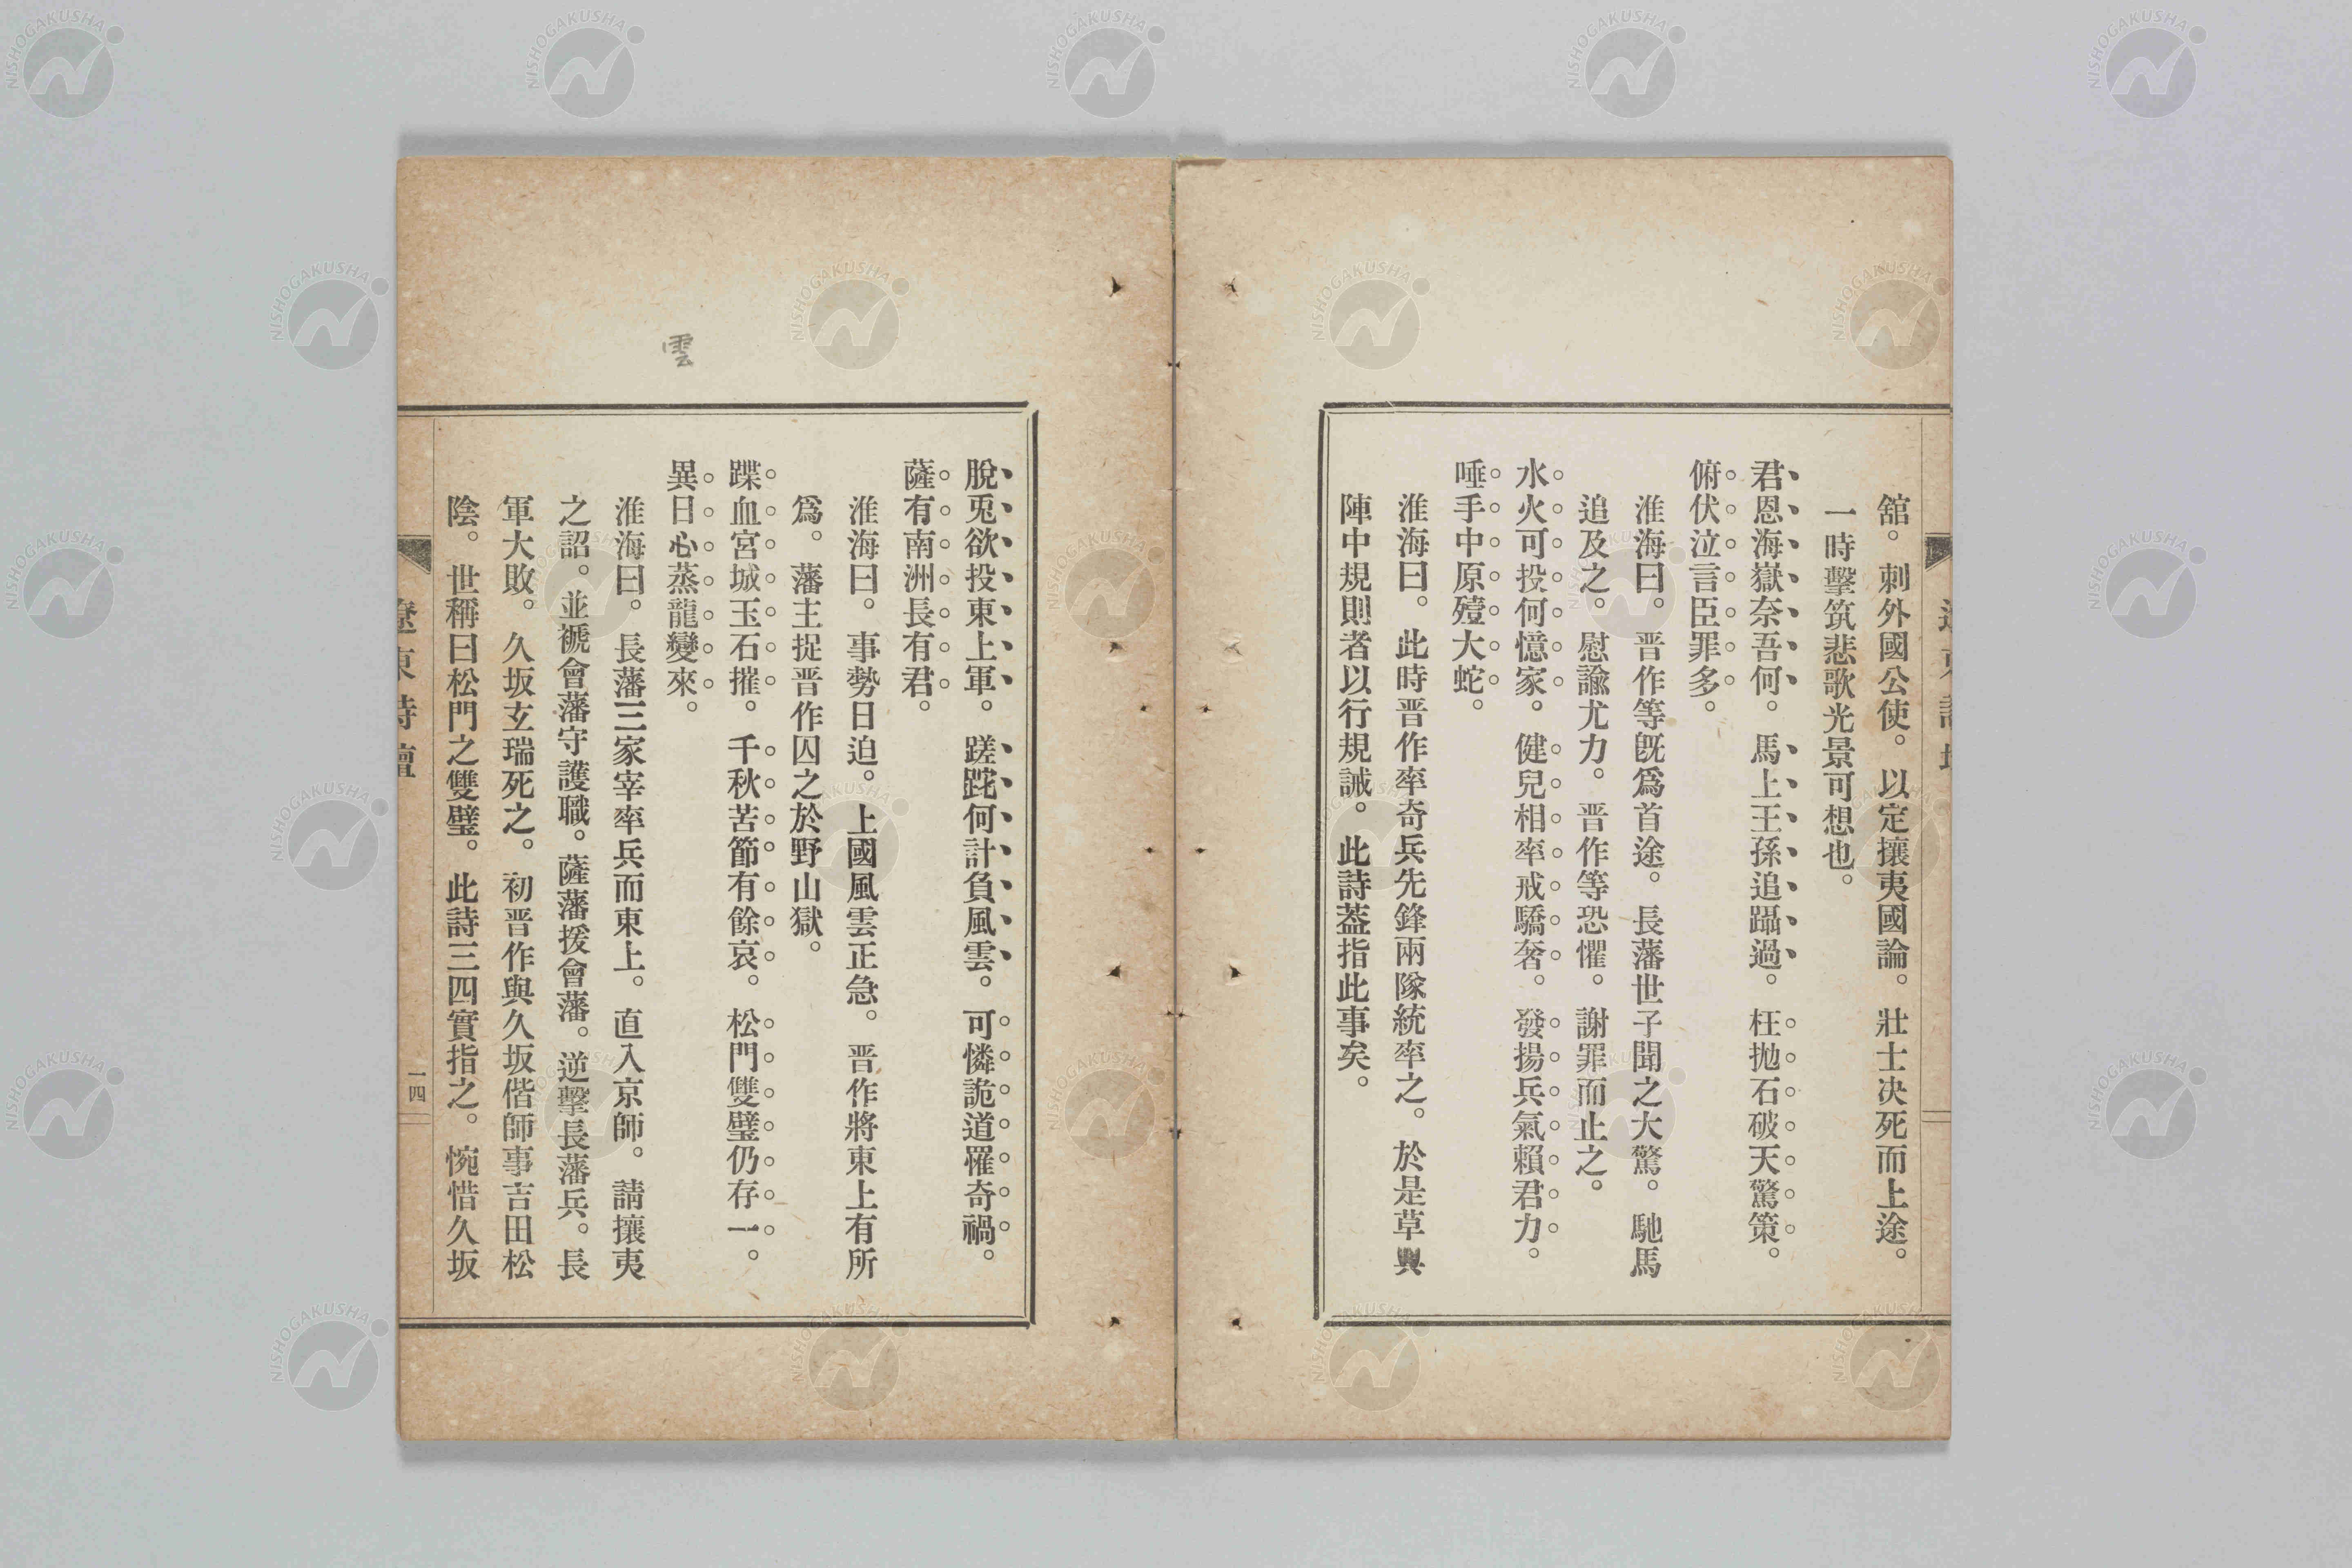 舘。刺外國公使。以定攘夷國論。壯士决死而上途。
一時擊筑悲歌光景可想也。
君恩海嶽奈吾何。馬上王孫追躡過。枉抛石破天驚策。
俯伏泣言臣罪多。
淮海曰。晋作等既爲首途。長藩世子聞之大驚。馳馬
追及之。慰諭尤力。晋作等恐懼。謝罪而止之。
水火可投何憶家。健兒相率戒驕奢。發揚兵氣賴君力。
唾手中原殪大蛇。
淮海曰。此時晋作率奇兵先鋒兩隊統率之。於是草與
陣中規則者以行規誡。此詩葢指此事矣。
脫兎欲投東上軍。蹉跎何計負風雲。可憐詭道罹奇禍。
薩有南洲長有君。
淮海曰。事勢日迫。上國風雲正急。晋作將東上有所
爲。藩主捉晋作囚之於野山獄。
蹀血宮城玉石摧。千秋苦節有餘哀。松門雙璧仍存一。
異日心蒸龍變來。
淮海曰。長藩三家宰率兵而東上。直入京師。請攘夷
之詔。並褫會藩守護職。薩藩援會藩。逆擊長藩兵。長
軍大敗。久坂玄瑞死之。初晋作與久坂偕師事吉田松
陰。世稱曰松門之雙璧。此詩三四實指之。惋惜久坂
遼東詩壇
一四
雲
NISHOGAKUSHA